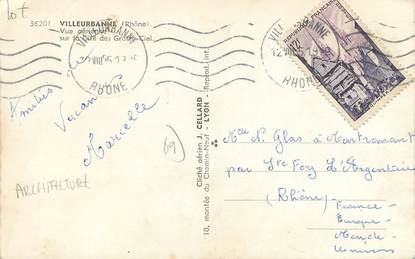 Lot
36201 VILLEURBANNE (Rhône)
Vue aérienne
sur la Cité des Gratte-Ciel
VILLEURBANNE
RHÔNE
VILLEURBANNE
RHÔNE
Amitiés
Vacances
Marcelle
69
ARCHITECTURE
Cliché aérien J. CELLARD
10, montée du Chemin-Neuf - LYON - Reprod. int.
Mlle N. Glas à Montromant
par Ste Foy L'Argentière
(Rhône)
France
Europe
Monde
Univers